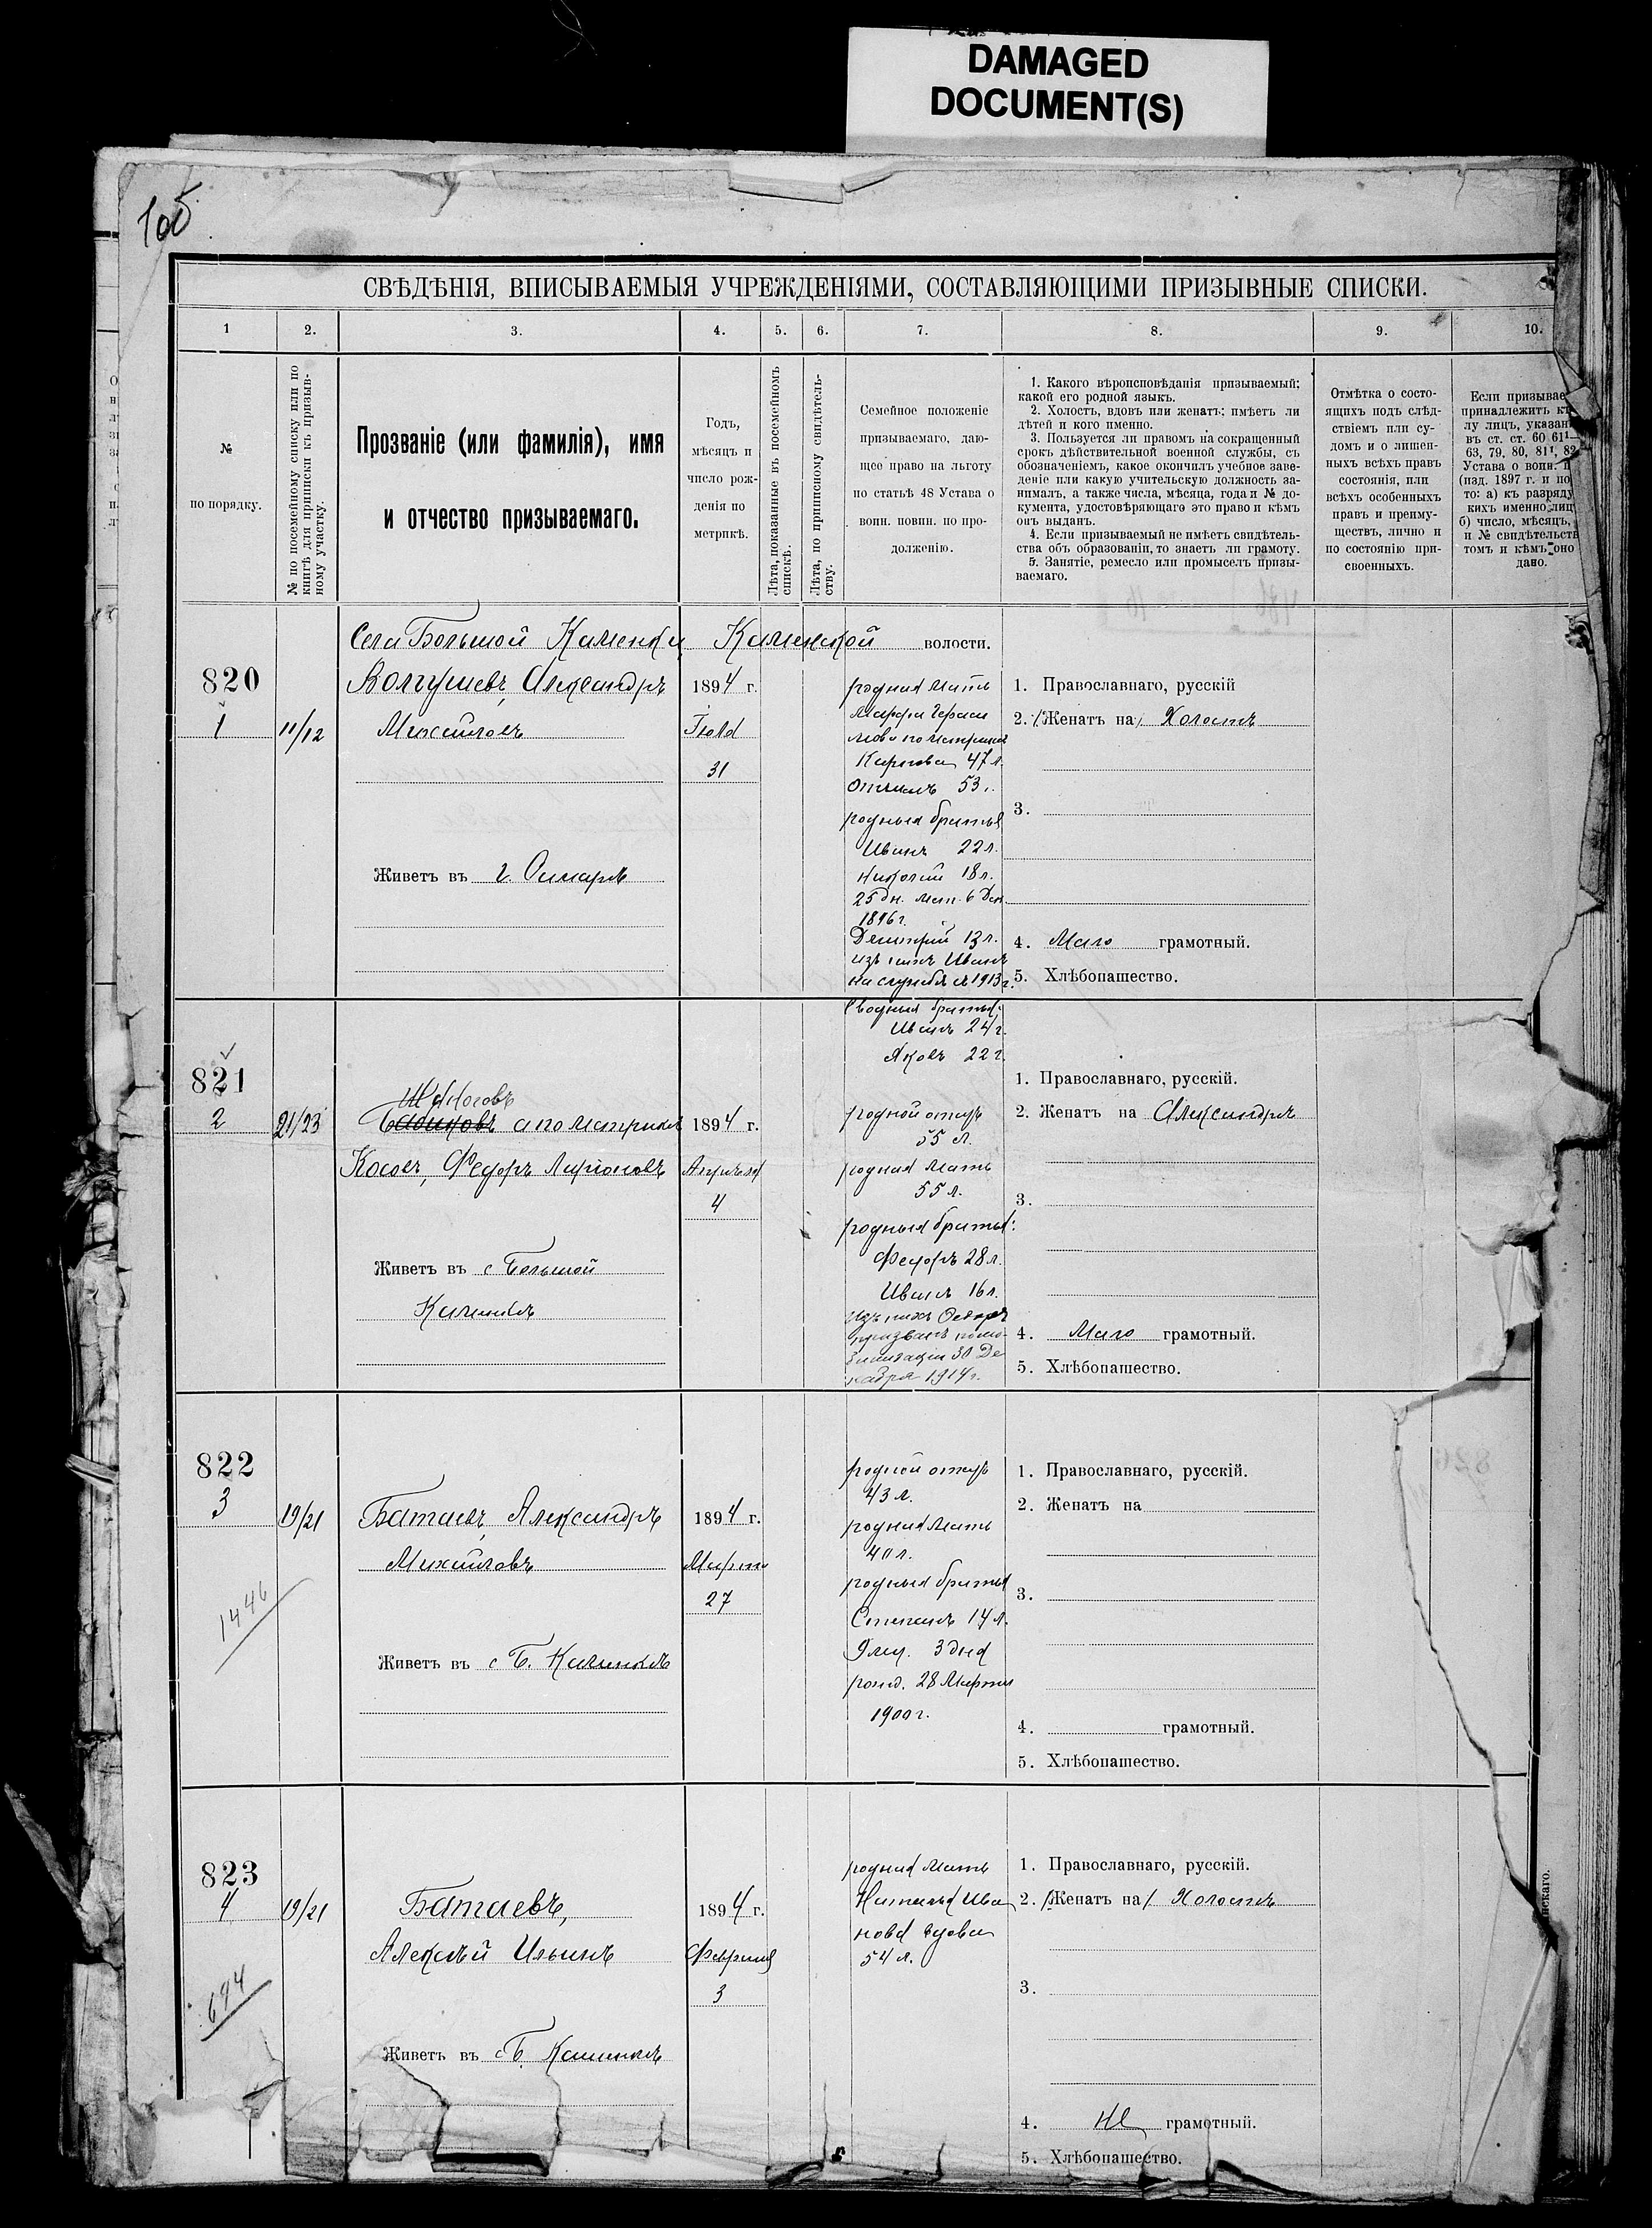 DAMAGED
DOCUMENT(S)
105
СВѢДѢНІЯ, ВПИСЫВАЕМЫЯ УЧРЕЖДЕНІЯМИ, СОСТАВЛЯЮЩИМИ ПРИЗЫВНЫЕ СПИСКИ.
1 2. 3. 4. 5. 6. 7. 8. 9. 10.
№
по порядку.
№ по посемейному списку или по
книгѣ для приписки къ призыв-
ному участку.
Прозваніе (или фамилія), имя
и отчество призываемаго.
Годъ,
мѣсяцъ и
число рож-
денія по
метрикѣ.
Лѣта, показанные въ посемейномъ
спискѣ.
Лѣта, по приписному свидѣтель-
ству.
Семейное положеніе
призываемаго, даю-
щее право на льготу
по статьѣ 48 Устава о
воин. повин. по про-
долженію.
1. Какого вѣроисповѣданія призываемый;
какой его родной языкъ.
2. Холостъ, вдовъ или женатъ; имѣетъ ли
дѣтей и кого именно.
3. Пользуется ли правомъ на сокращенный
срокъ дѣйствительной военной службы, съ
обозначеніемъ, какое окончилъ учебное заве-
деніе или какую учительскую должность за-
нималъ, а также числа, мѣсяца, года и № до-
кумента, удостовѣряющаго это право и кѣмъ
онъ выданъ.
4. Если призываемый не имѣетъ свидѣтель-
ства объ образованіи, то знаетъ ли грамоту.
5. Занятіе, ремесло или промыселъ призы-
ваемаго.
Отмѣтка о состо-
ящихъ подъ слѣд-
ствіемъ или су-
домъ и о лишен-
ныхъ всѣхъ правъ
состоянія, или
всѣхъ особенныхъ
правъ и преиму-
ществъ, лично и
по состоянію при-
своенныхъ.
Если призывае
принадлежитъ къ
лу лицъ, указан
въ ст. ст. 60 61¹—
63, 79, 80, 81¹, 82
Устава о воин. п
(изд. 1897 г. и по
то: а) къ разряду
кихъ именно лиц
б) число, мѣсяцъ,
и № свидѣтельств
томъ и кѣмъ оно
дано.
Села Большой Каменки Каменской волости.
820
1
11/12
Волгушевъ, Александръ
Михайловъ
Живетъ въ г. Самарѣ
1894 г.
Іюля
31
родная мать
47 л.
Отчимъ 53
родныя братья
Иванъ 22 л.
Николай 18 л.
25 дн. 6 Дек.
1896 г.
Дмитрій 13 л.
изъ нихъ Иванъ
на службѣ съ 1913 г.
Сводныя братья:
Иванъ 24 г.
Яковъ 22 г.
1. Православнаго, русскій
2. /Женатъ на/ Холостъ
3.
4. Мало грамотный.
5. Хлѣбопашество.
821
2
21/23
а по метрикѣ
Косовъ, Федоръ Ларіоновъ
Живетъ въ с Большой
Каменкѣ
1894 г.
Апрѣля
4
родной отецъ
55 л.
родная мать
55 л.
родныя братья:
Федоръ 28 л.
Иванъ 16 л.
изъ нихъ Федоръ
призванъ по мо-
билизаціи 30 Де
кабря 1914 г.
1. Православнаго, русскій.
2. Женатъ на Александрѣ
3.
4. Мало грамотный.
5. Хлѣбопашество.
822
3
19/21
1446
Батаевъ, Александръ
Михайловъ
Живетъ въ с Б. Каменкѣ
1894 г.
Марта
27
родной отецъ
43 л.
родная мать
40 л.
родныя братья
Степанъ 14 л.
9 мц. 3 дня
рожд. 28 Марта
1900 г.
1. Православнаго, русскій.
2. Женатъ на
3.
4. грамотный.
5. Хлѣбопашество.
823
4
19/21
694
Батаевъ,
Алексѣй Ильинъ
Живетъ въ с Б. Каменкѣ
1894 г.
Февраля
3
родная мать
Наталья Ива
нова вдова
54 л.
1. Православнаго, русскій.
2. /Женатъ на/ Холостъ
3.
4. Не грамотный.
5. Хлѣбопашество.